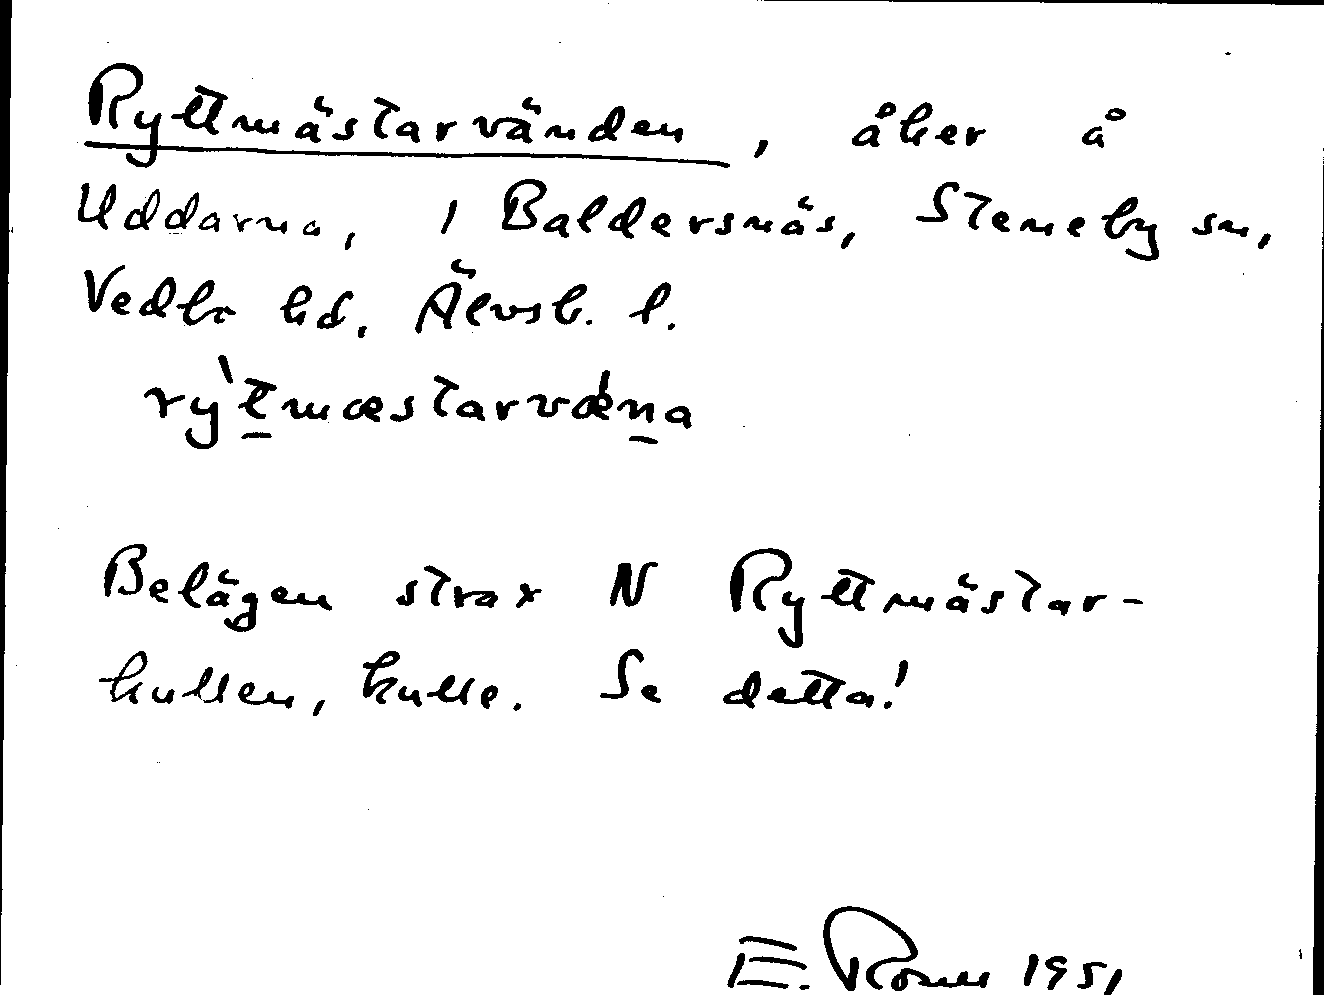 Ryttmästarvänden, åker å
Uddarna, i Baldersnäs, Steneby sn,
Vedbo hd. Älvsb. l.
rỳ̖t̲mæstarvǽn̲a
Belägen strax N Ryttmästar-
kullen, kulle. Se detta!
E. 1951